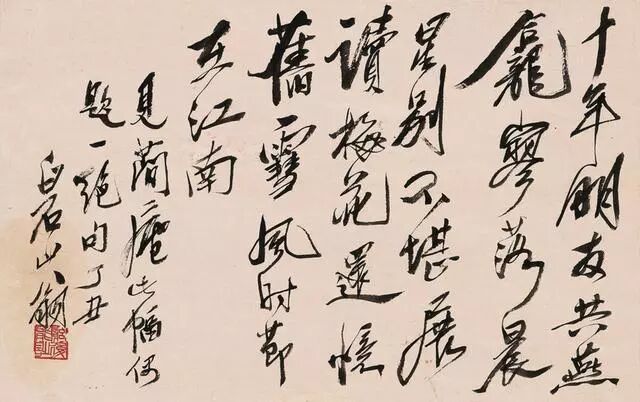 十年朋友共燕
龕寥落晨
星别不堪展
讀梅花還憶
舊雪風时節
在江南
見庵此幅偶
題一絕句丁丑
白石山翁